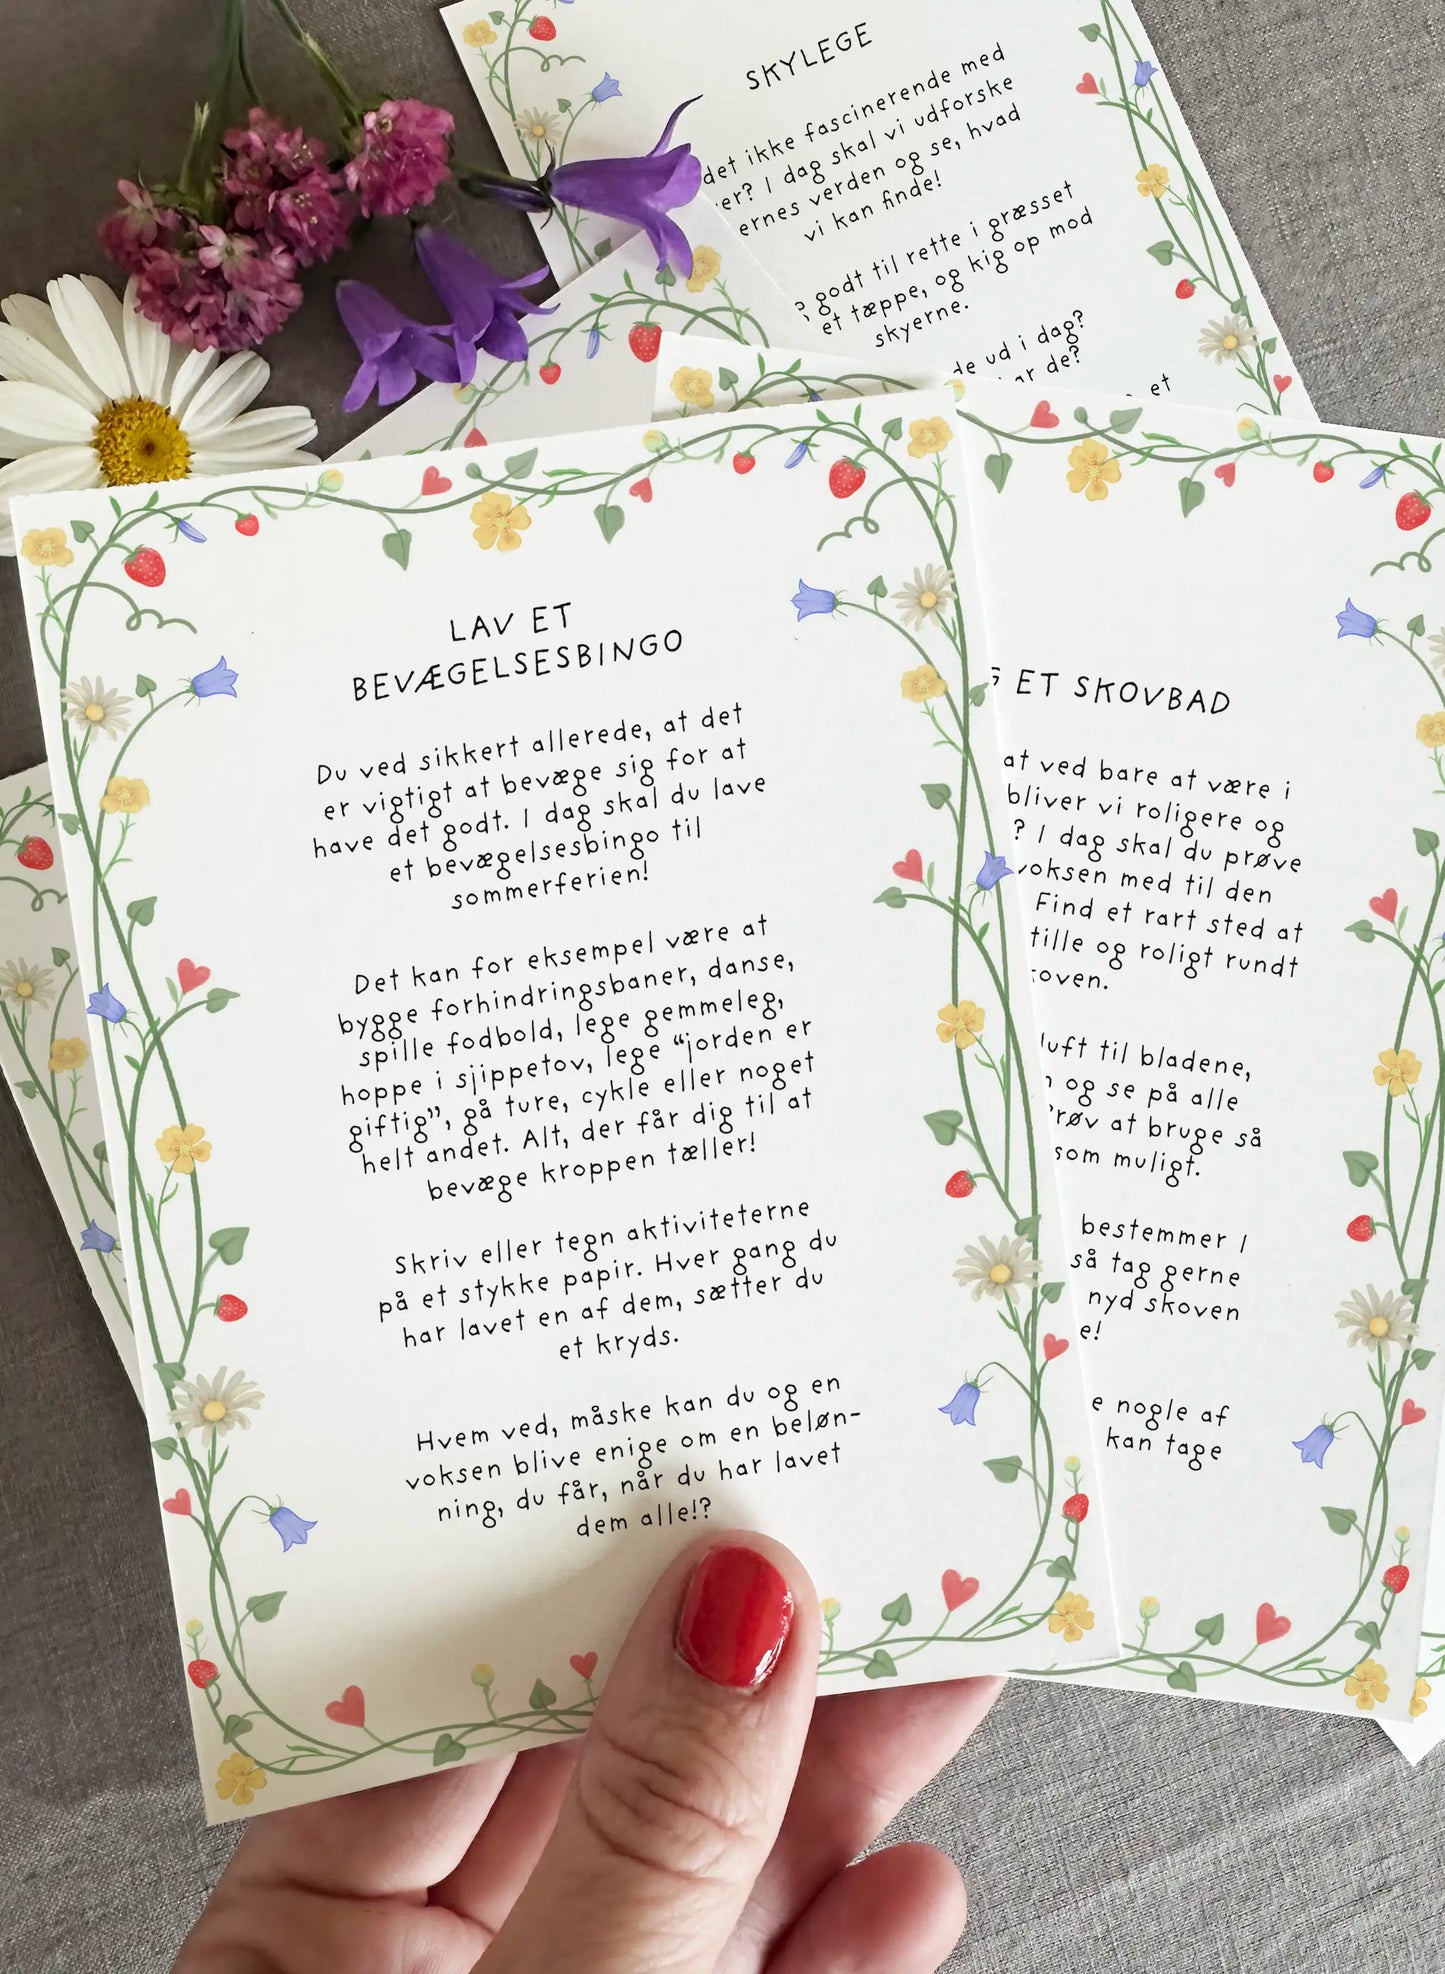 SKYLEGE
det ikke fascinerende med
er? I dag skal vi udforske
ernes verden og se, hvad
vi kan finde!
godt til rette i græsset
et tæppe, og kig op mod
skyerne.
de ud i dag?
ar de?
et
LAV ET
BEVÆGELSESBINGO
Du ved sikkert allerede, at det
er vigtigt at bevæge sig for at
have det godt. I dag skal du lave
et bevægelsesbingo til
sommerferien!
Det kan for eksempel være at
bygge forhindringsbaner, danse,
spille fodbold, lege gemmeleg,
hoppe i sjippetov, lege “jorden er
giftig”, gå ture, cykle eller noget
helt andet. Alt, der får dig til at
bevæge kroppen tæller!
Skriv eller tegn aktiviteterne
på et stykke papir. Hver gang du
har lavet en af dem, sætter du
et kryds.
Hvem ved, måske kan du og en
voksen blive enige om en beløn-
ning, du får, når du har lavet
dem alle!?
ET SKOVBAD
at ved bare at være i
bliver vi roligere og
? I dag skal du prøve
voksen med til den
Find et rart sted at
tille og roligt rundt
oven.
luft til bladene,
og se på alle
Prøv at bruge så
som muligt.
bestemmer I
så tag gerne
nyd skoven
e!
e nogle af
kan tage